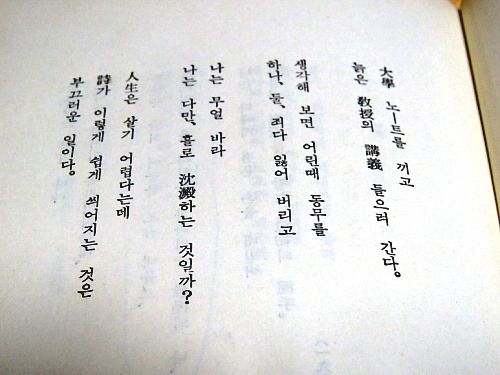 大學 노ー트를 끼고
늙은 敎授의 講義 들으러 간다。
생각해 보면 어린때 동무를
하나、둘、죄다 잃어 버리고
나는 무얼 바라
나는 다만、홀로 沈澱하는 것일까?
人生은 살기 어렵다는데
詩가 이렇게 쉽게 씌어지는 것은
부끄러운 일이다。